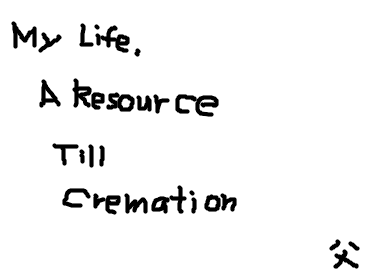 My Life.
A Resource
Till
Cremation
父